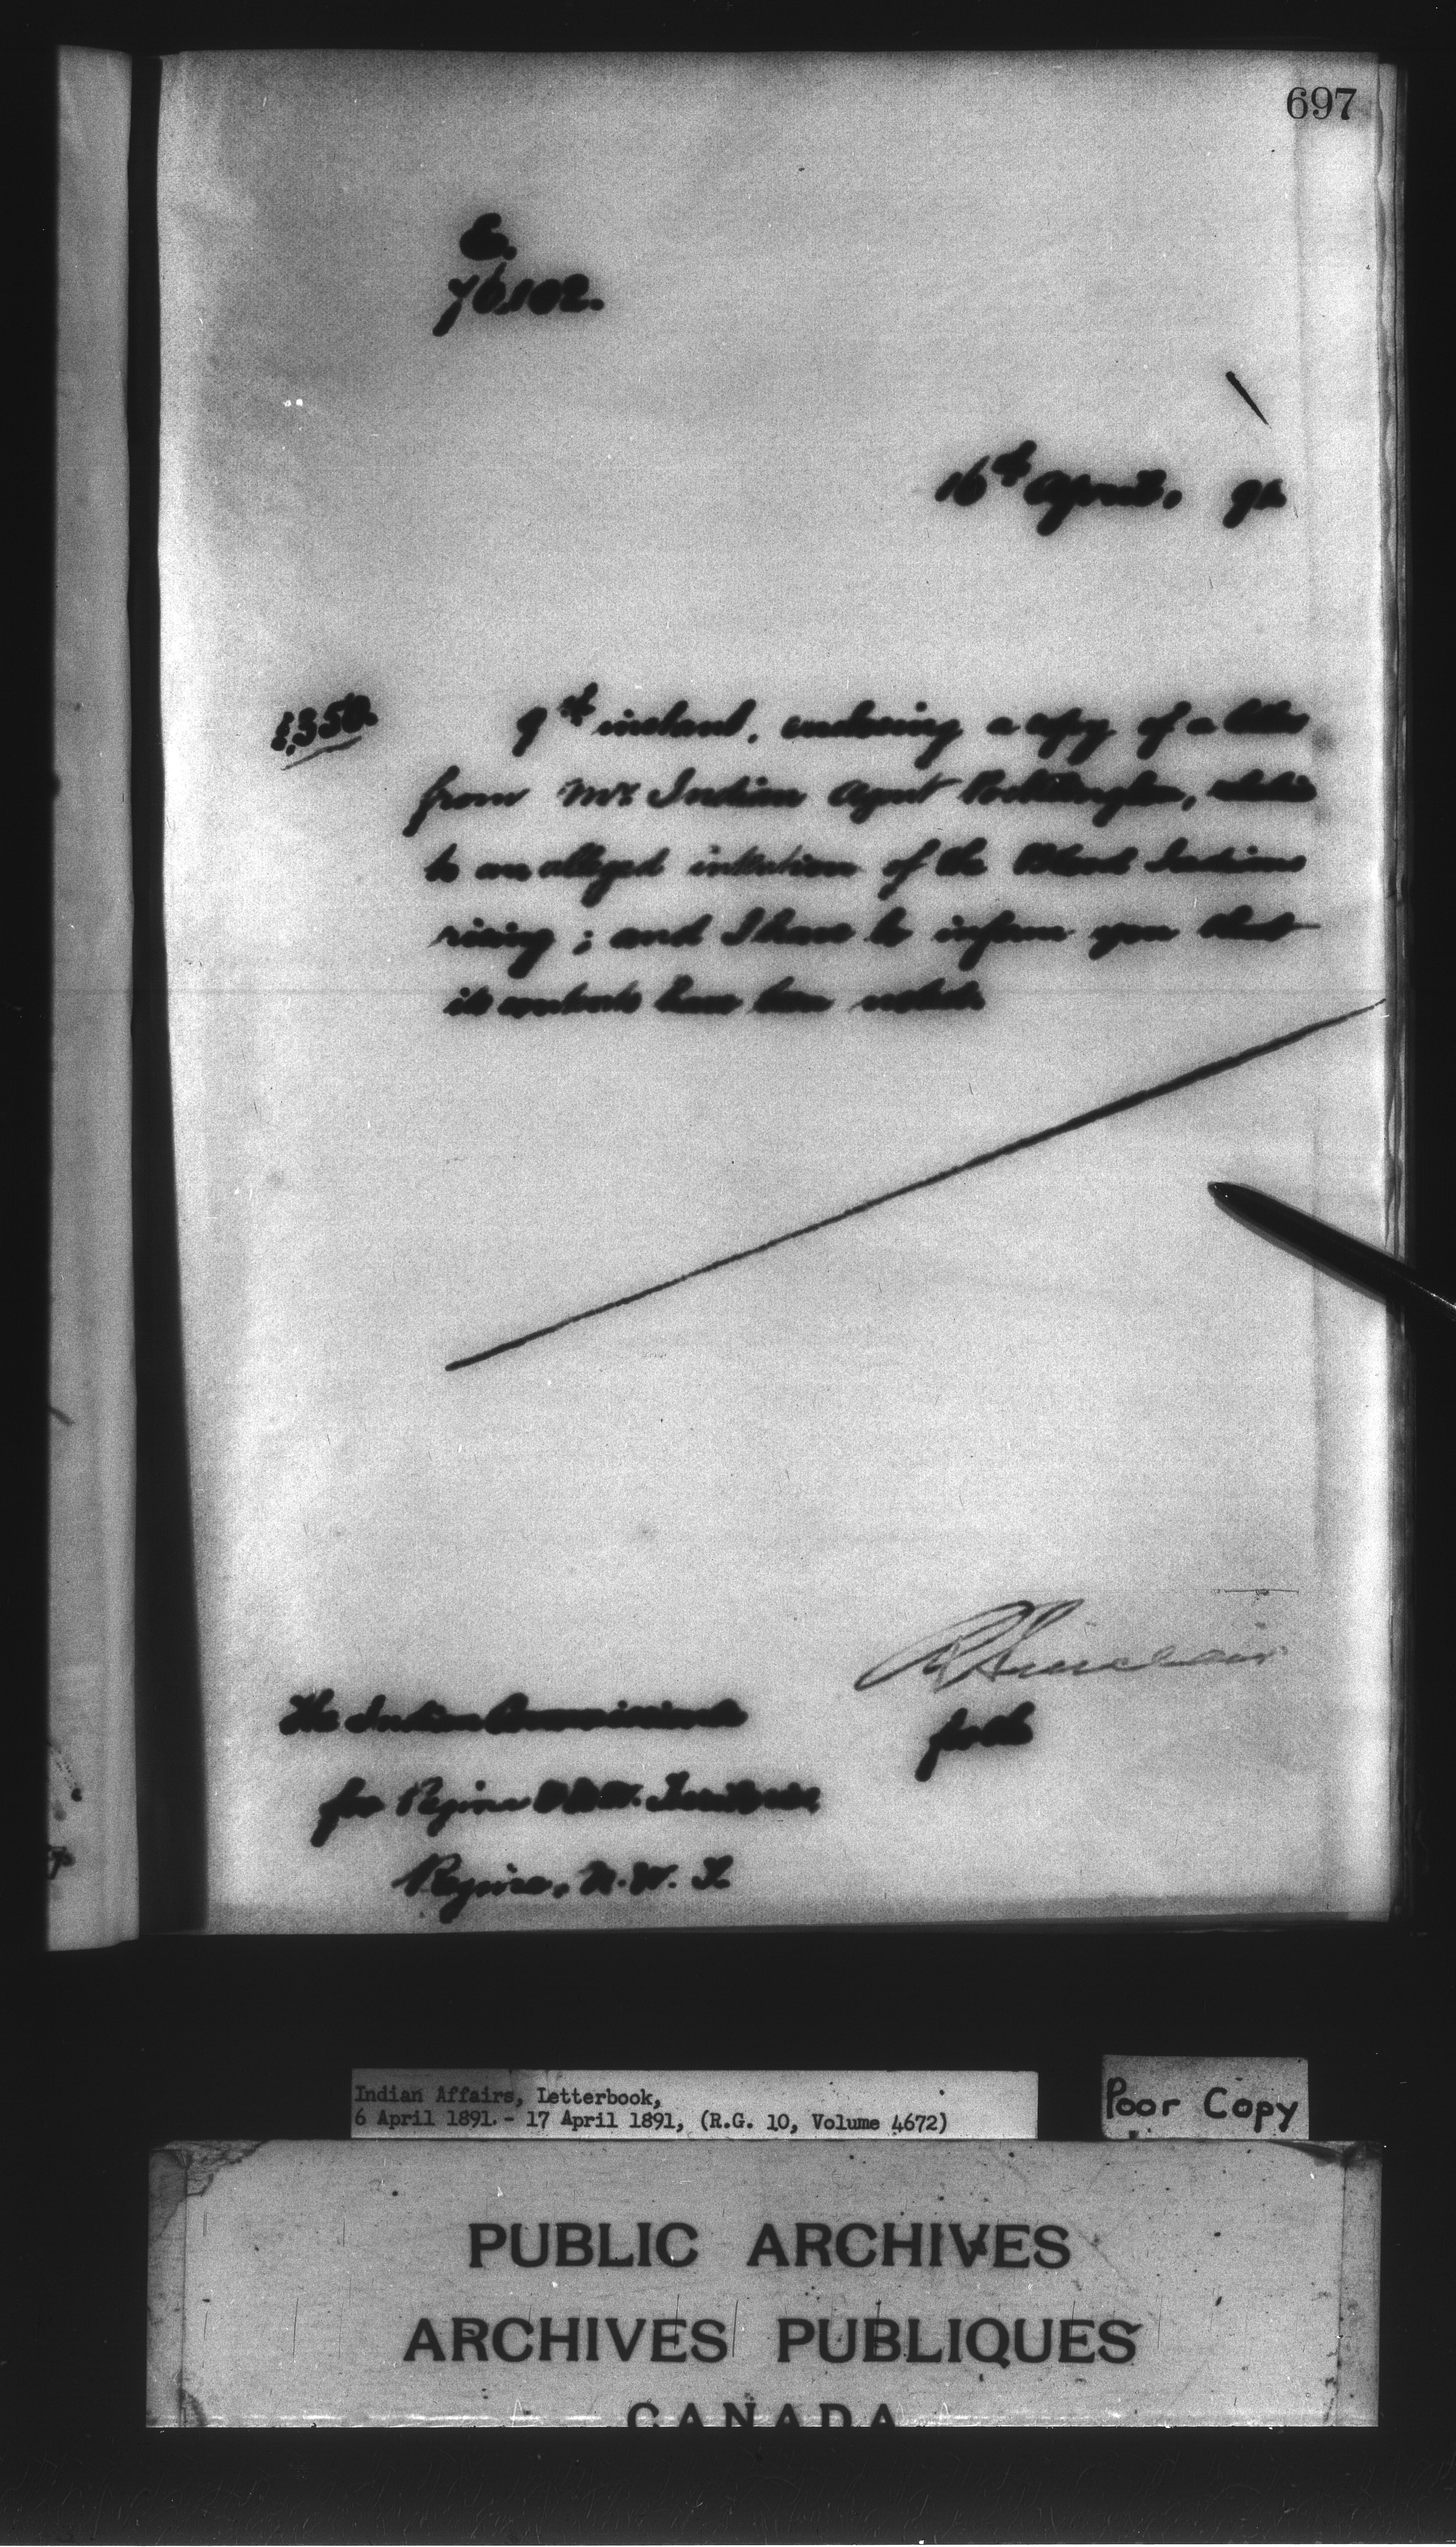 697
E.
76,102.
16th April, 91
9th instant, enclosing a copy of a letter
from Mr Indian Agent Pocklington, relative
to an alleged intention of the Blood Indians
rising; and I have to inform you that
its contents have been noted.
R Sinclair
The Indian Commissioner
for the
for
Regina, N. W. T.
Indian Affairs, Letterbook,
6 April 1891.- 17 April 1891, (R.G. 10, Volume 4672)
Poor Copy
PUBLIC ARCHIVES
ARCHIVES PUBLIQUES
CANADA